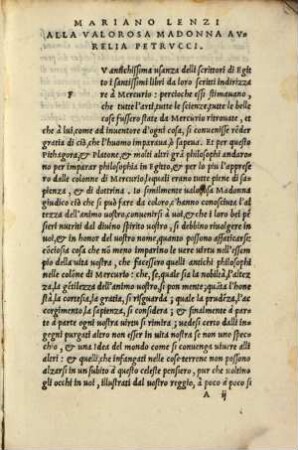 MARIANO LENZI
ALLA VALOROSA MADONNA AV=
RELIA PETRVCCI.
V antichissima usanza delli scrittori di Egit
to i santissimi libri da loro scritti indirizza
F re à Mercurio: percioche essi stimauano,
che tutte l'arti, tutte le scienze, tutte le belle
cose fussero state da Mercurio ritrouate, et
che à lui, come ad inuentore d'ogni cosa, si conuenisse rēder
gratia di ciò, che l'huomo imparaua, ò sapeua. Et per questo
Pithagora, & Platone, & molti altri grā philosophi andaro
no per imparar philosophia in Egitto, & per lo piu l'appreser
ro dalle colonne di Mercurio, lequali erano tutte piene di sa=
pienza, & di dottrina. Io similmente ualorosa Madonna
giudico ciò che si può fare da coloro, c'hanno conosciuta l'al
tezza dell'animo uostro, conuenirsi à uoi, & che i loro bei pē
sieri nutriti dal diuino spirito uostro, si debbino riuolgere in
uoi, & in honor del uostro nome, quanto possono affaticarse:
cōciosia cosa che nō meno imparino le uere uirtu nell'essem
pio della uita uostra, che facessero quelli antichi philosophi
nelle colōne di Mercurio: che, se, quale sia la nobiltà, l'altez
za, la gētilezza dell'animo uostro, si pon mente; quāta l'hone
stà, la cortesia, la gratia, si risguarda; quale la prudēza, l'ac
corgimento, la sapienza, si considera; & finalmente à par=
te à parte ogni uostra uirtu si rimira; uedesi certo dalli inge
gni purgati altro non esser in uita uostra se non uno specchio
& una Idea del mondo come si conuenga uiuere alli
altri: & quelli, che infangati nelle cose terrene non possono
alzarsi in un subito à questo celeste pensiero, pur che uoltino
gli occhi in uoi, illustrati dal uostro raggio, à poco à poco si
A ij